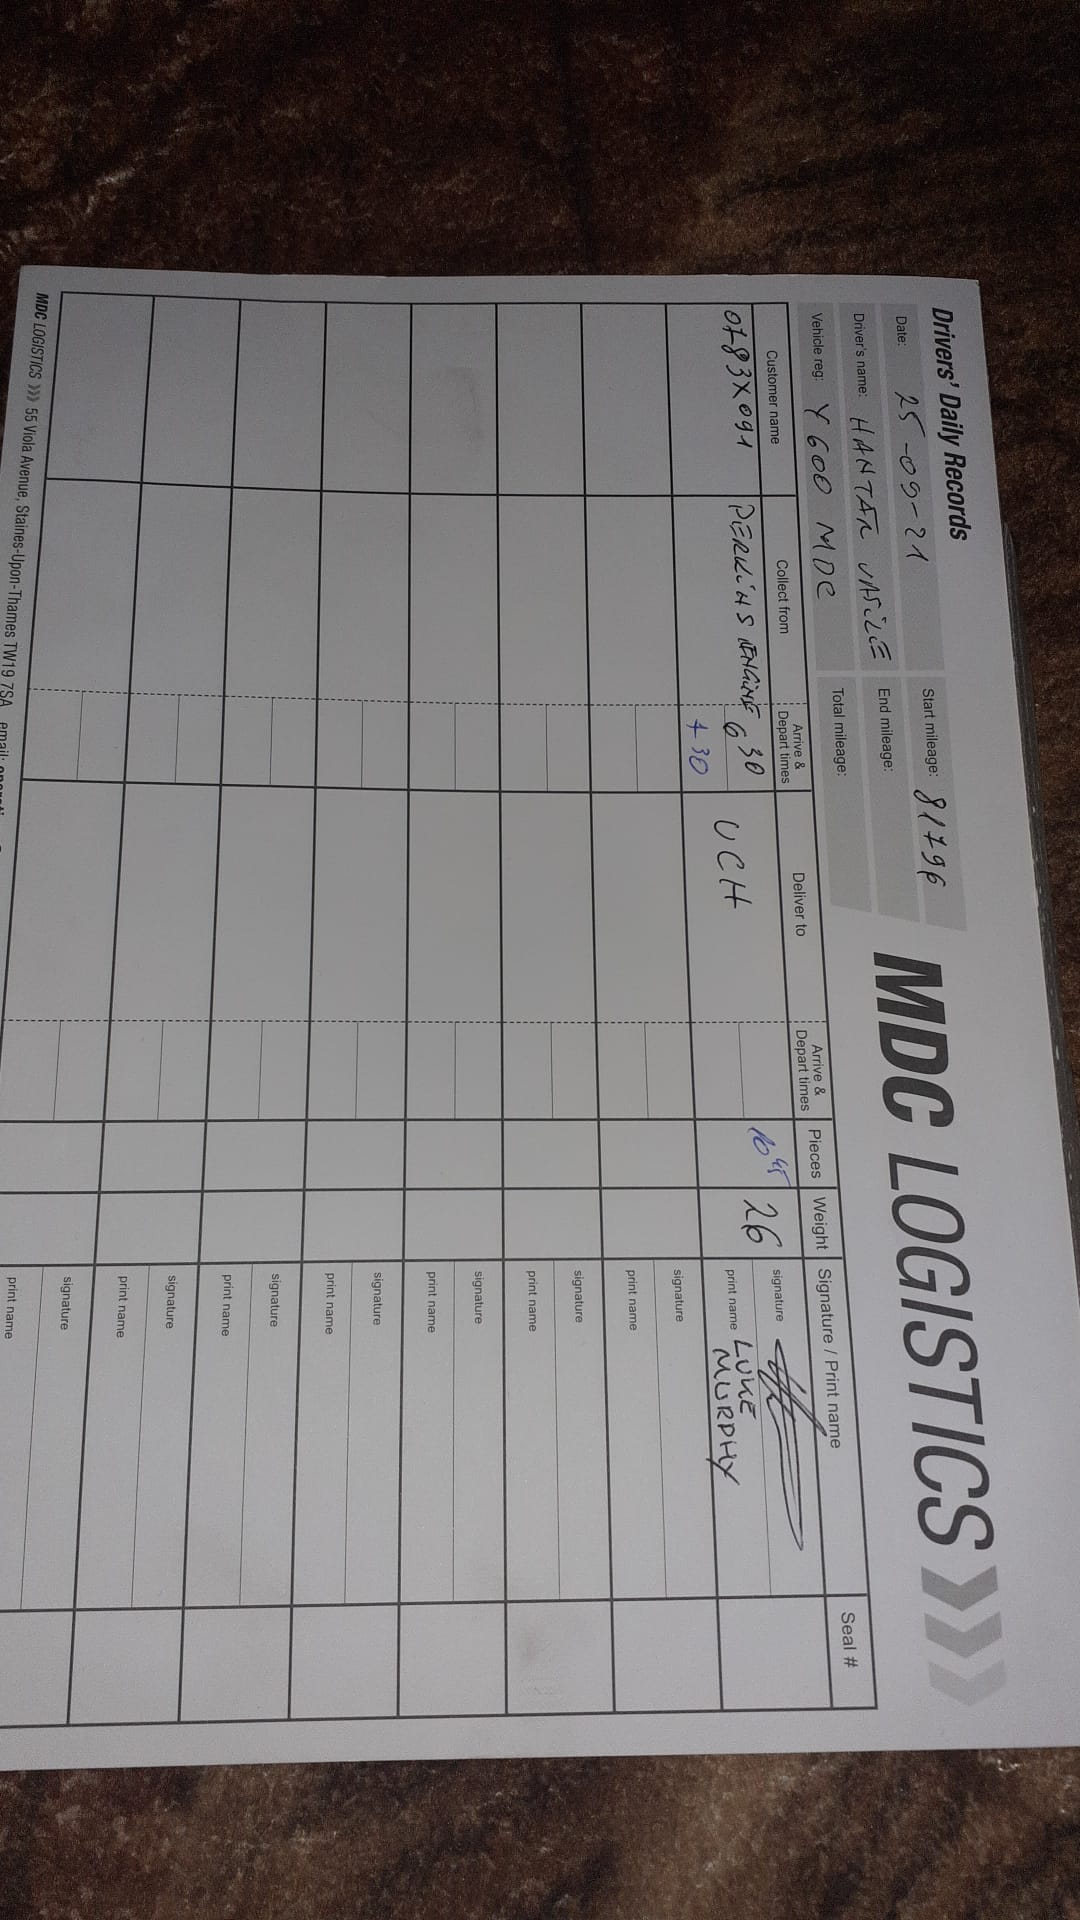 Drivers' Daily Records
MDC LOGISTICS
Date: 25-09-21
Start mileage: 81796
Driver's name: HANTAR VASILE
End mileage:
Vehicle reg: Y 600 MDC
Total mileage:
Customer name Collect from Arrive & Depart times Deliver to Arrive & Depart times Pieces Weight Signature / Print name Seal #
0783X091 PERKINS ENGINE 6 30 UCH 10 45 26 signature
7 30 print name LUKE MURPHY
signature
print name
signature
print name
signature
print name
signature
print name
signature
print name
signature
print name
signature
print name
MDC LOGISTICS 55 Viola Avenue, Staines-Upon-Thames TW19 7SA email: